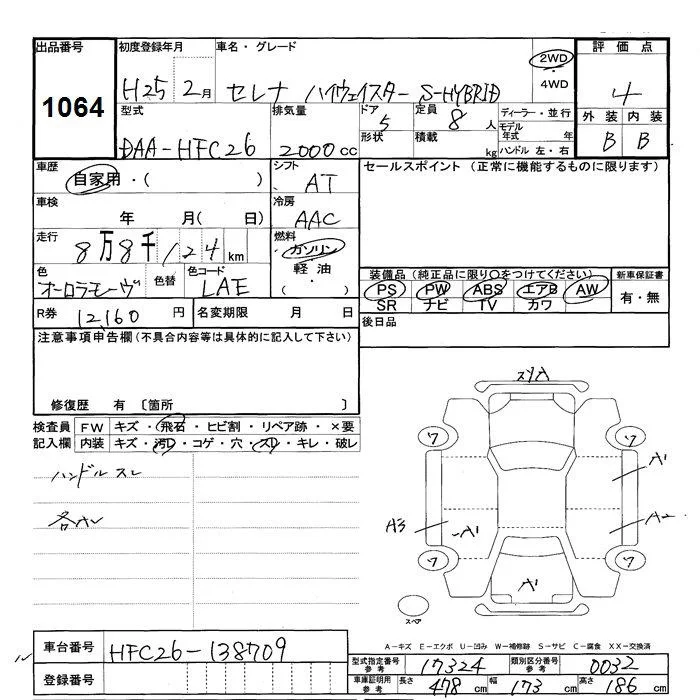 出品番号 1064
初度登録年月 H25 2月
車名・グレード セレナ ハイウェイスター S-HYBRID
2WD
・
4WD
評価点 4
外装 内装
B B
型式 DAA-HFC26
排気量 2000cc
ドア 5
形状
定員 8人
積載 kg
ディーラー・並行
モデル年式 年
ハンドル 左・右
車歴 自家用・( )
シフト AT
セールスポイント (正常に機能するものに限ります)
車検 年 月( 日)
冷房 AAC
走行 8万8千124km
燃料 ガソリン
軽油
・
( )
色 オーロラモーヴ
色替
色コード LAE
装備品(純正品に限り○をつけてください)
PS PW ABS エアB AW
SR ナビ TV カワ
新車保証書
有・無
R券 12,160円
名変期限 月 日
後日品
注意事項申告欄(不具合内容等は具体的に記入して下さい)
修復歴 有 〔箇所 〕
検査員記入欄
FW キズ・飛石・ヒビ割・リペア跡・×要
内装 キズ・汚レ・コゲ・穴・スレ・キレ・破レ
ハンドル スレ
ワ ワ
A1
A3 A1 A2
ワ ワ
A1
スペア
A-キズ E-エクボ U-凹み W-補修跡 S-サビ C-腐食 XX-交換済
車台番号 HFC26-138709
登録番号
型式指定番号 参考 17324
類別区分番号 参考 0032
車庫証明用 参考 長さ 478cm 幅 173cm 高さ 186cm